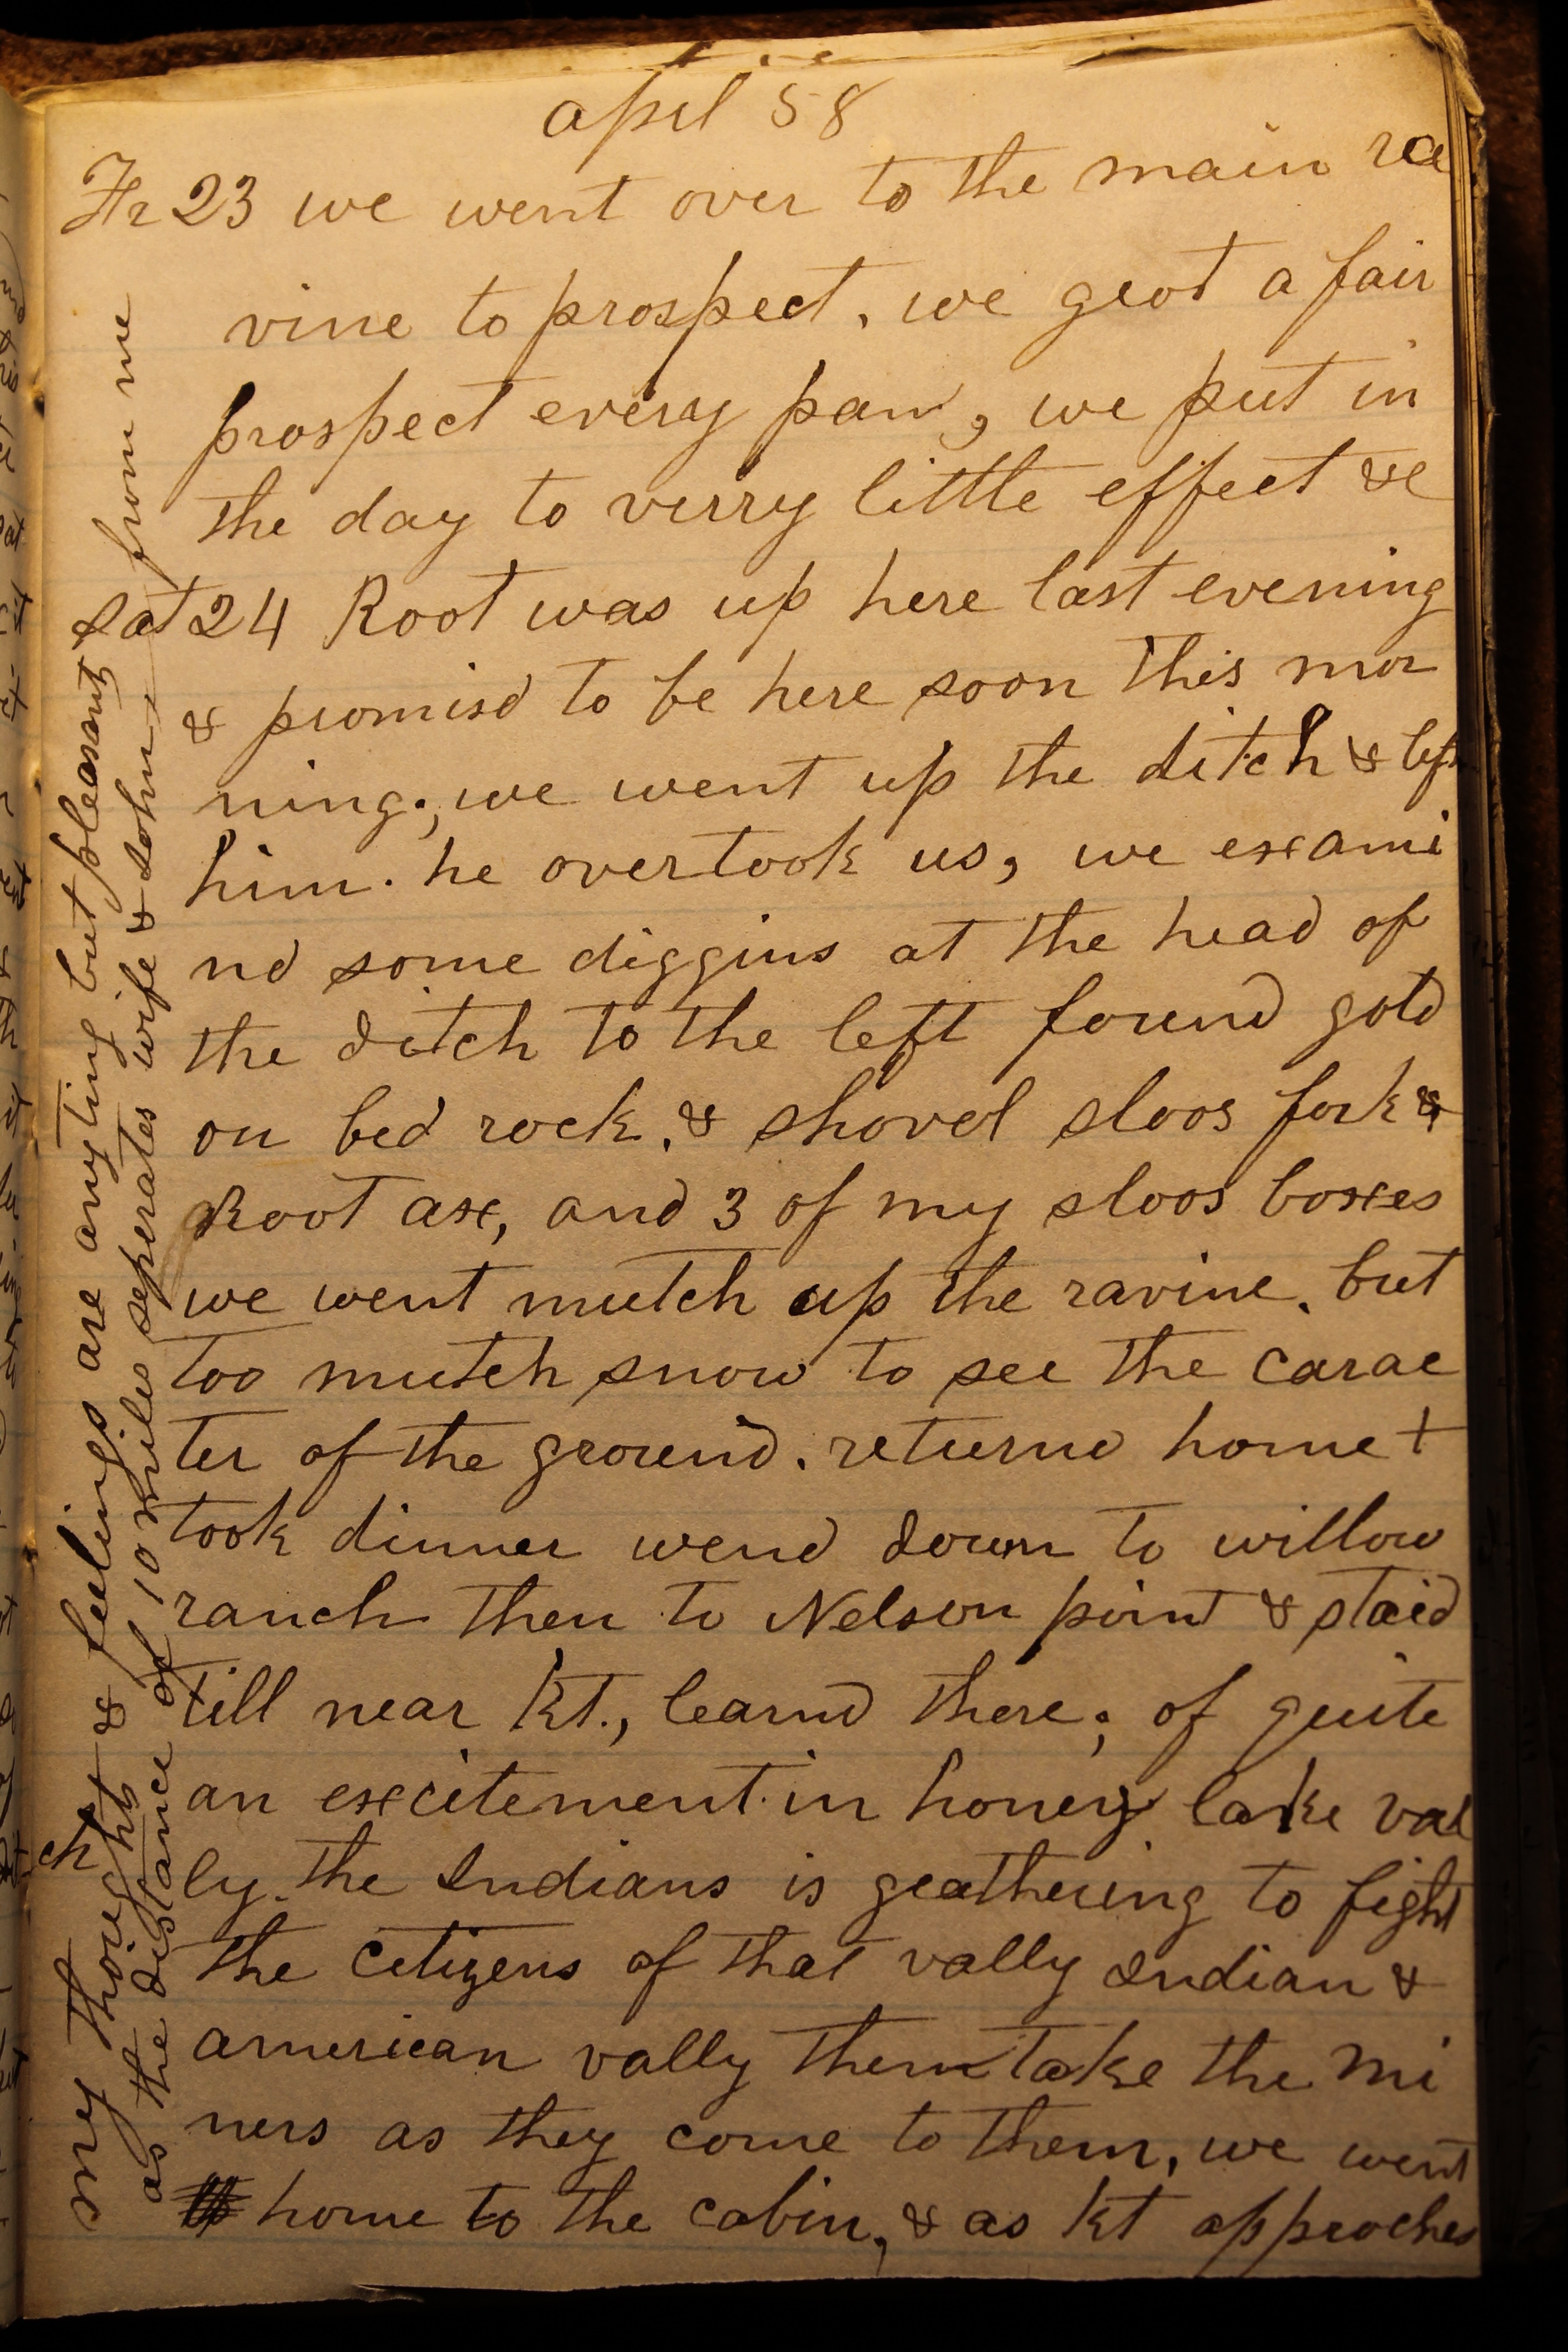 april 58
Fr 23 we went over to the main ra
vine to prospect, we geot a fair
prospect every pan, we put in
the day to verry little effect &c
Sat 24 Root was up here last evening
& promisd to be here soon this mor
ning; we went up the ditch & left
him. he overtook us, we exami
nd some diggins at the head of
the ditch to the left found gold
on bed rock. & shovel sloos fork &
Root axe, and 3 of my sloos boxes
we went mutch up the ravine. but
too mutch snow to see the carac
ter of the ground. returnd home +
took dinner wend down to willow
ranch then to Nelson point & staid
till near Kt., learnd there; of quite
an excitement in honey lake val
ly. the Indians is geathering to fight
the citizens of that vally Indian &
american vally them take the mi
ners as they come to them, we went
home to the cabin, & as Kt approches
my thoughts & feelings are anything but pleasant
as the distance of 10 miles seperates wife & John from me
ch